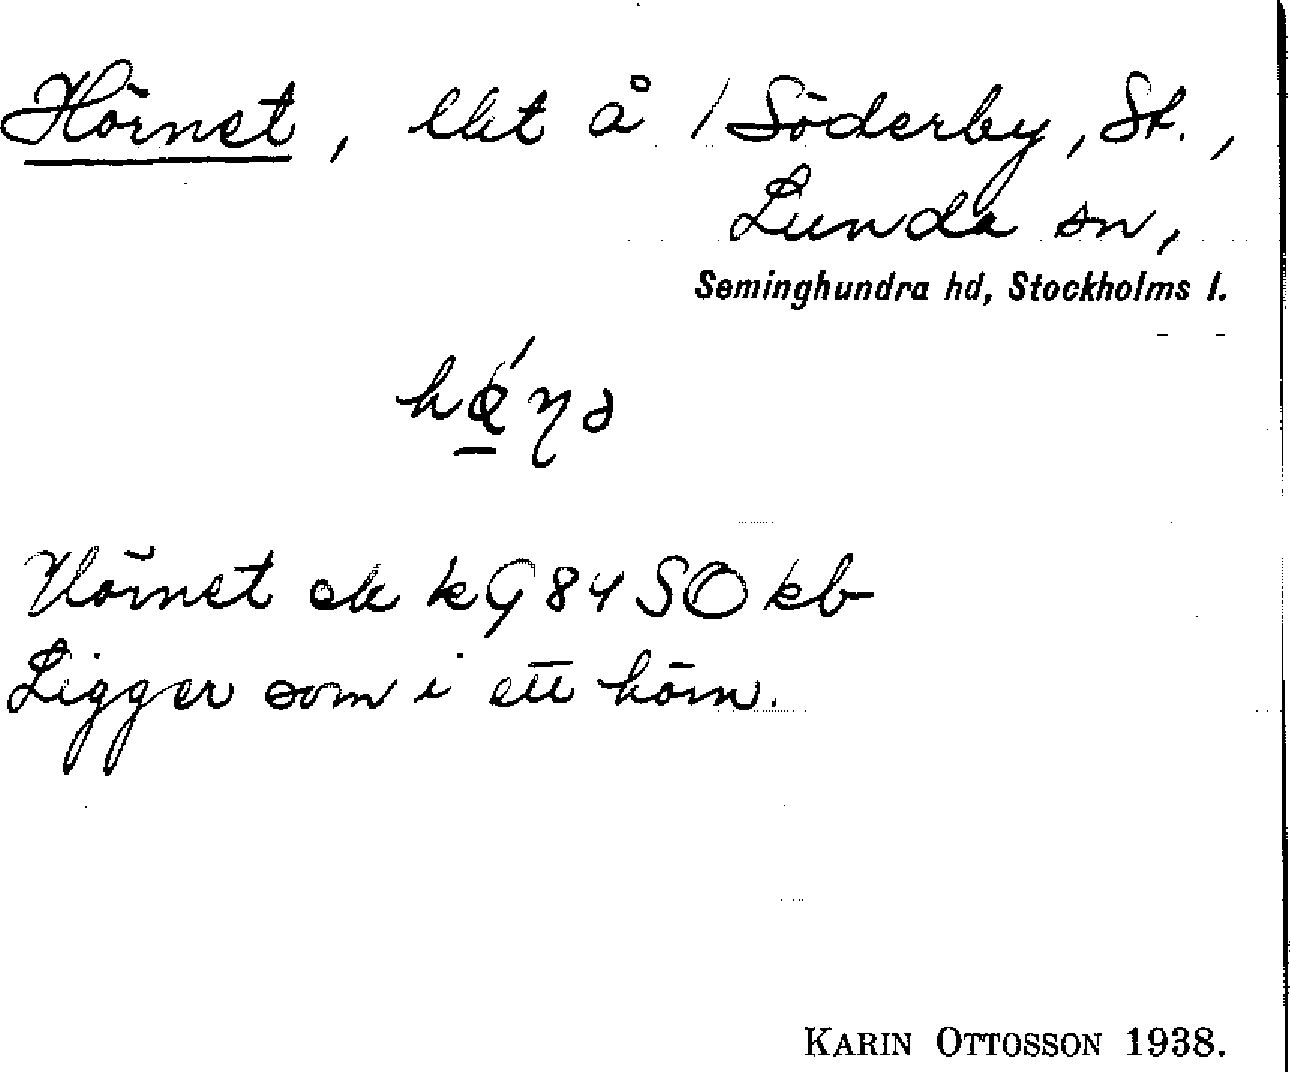 Hörnet, lkt å / Söderby, St.,
Lunda sn,
Seminghundra hd, Stockholms l.
Hörnet ek kG 84 SO kb
Ligger som i ett hörn.
KARIN OTTOSSON 1938.